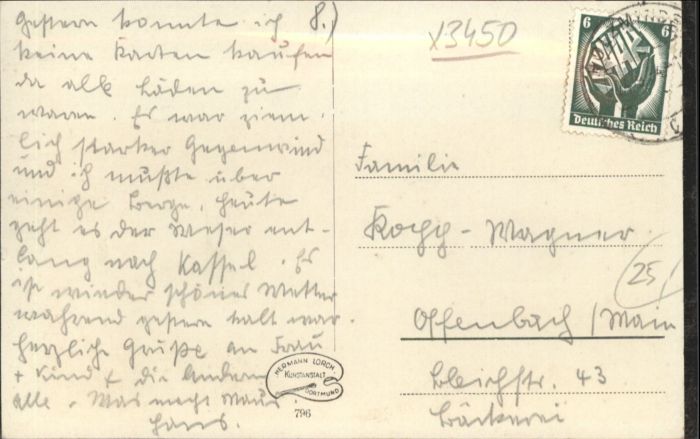 Gestern konnte ich 8.)
keine Karten kaufen
da alle Läden zu
waren. Es war ziem-
lich starker Gegenwind
und ich mußte über
einige Berge, heute
geht es der Weser ent-
lang nach Kassel. Es
ist wieder schönes Wetter
während gestern kalt war.
Herzliche Grüße an Frau
+ Kind + die Andern
alle. Was macht
Hans.
X3450
6 6
Deutsches Reich
MINDE
Familie
Wagner
25
Offenbach/Main
Bleichstr. 43
Bäckerei
HERMANN LORCH
KUNSTANSTALT
DORTMUND
796